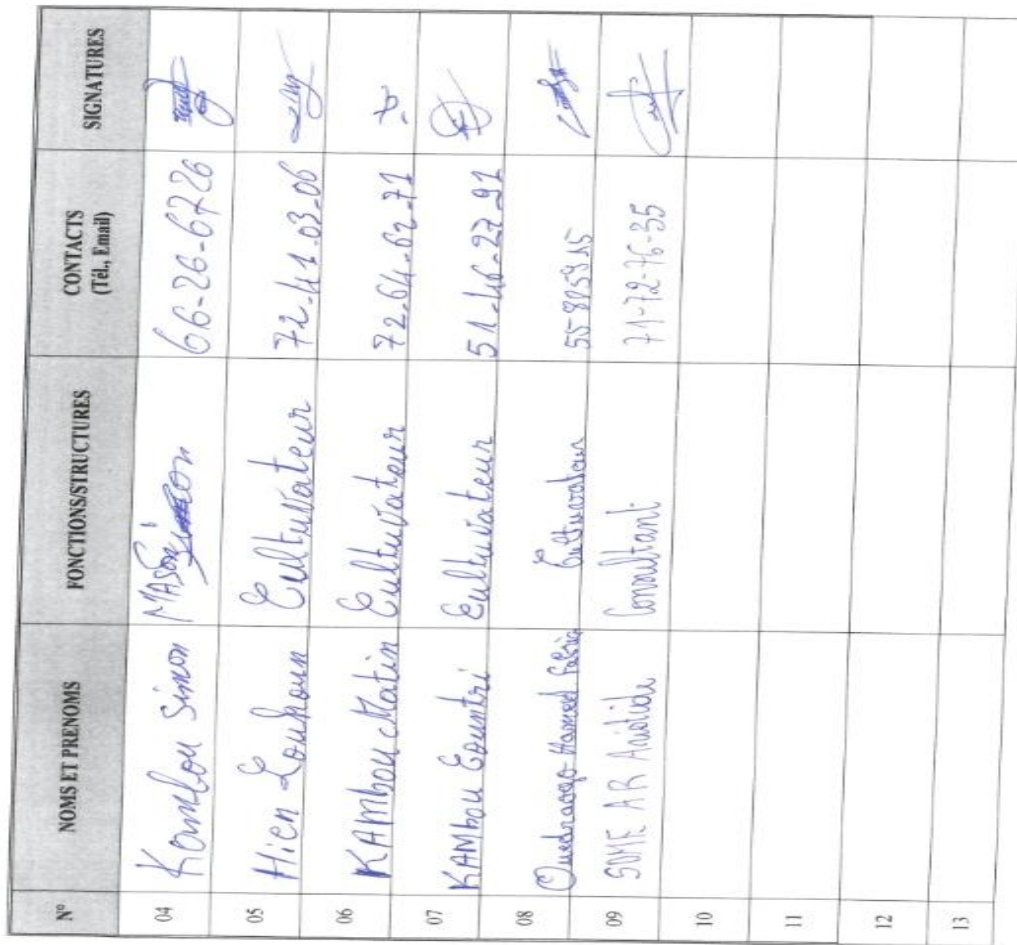 N° NOMS ET PRENOMS FONCTIONS/STRUCTURES CONTACTS (Tél., Email) SIGNATURES
04 Kambou Simon MASON 66-26-6726
05 Hien Louhoun Cultuvateur 72.41.03.06
06 KAMbou Matin Cultuvateur 72.64.62.71
07 KAMbou Countri Cultuvateur 51.46.27.91
08 Ouedraogo Hamed Cultuvateur
09 SOME AR Aristide Consultant 71-72-76-35
10
11
12
13